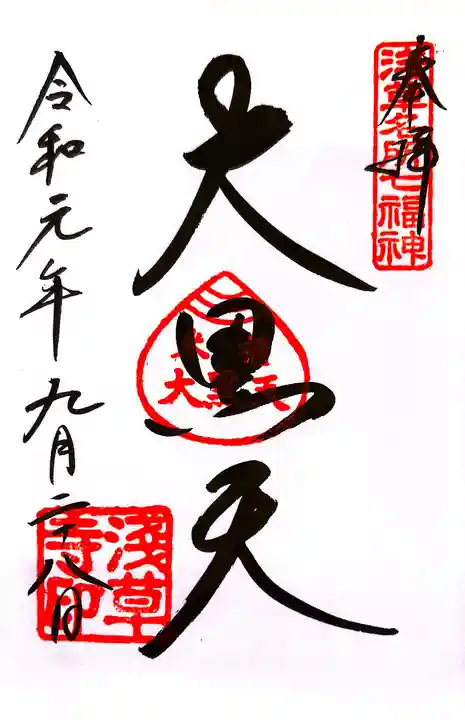 奉拝
浅草名所七福神
大黒天
大黒天
令和元年九月二十八日
淺草
寺印